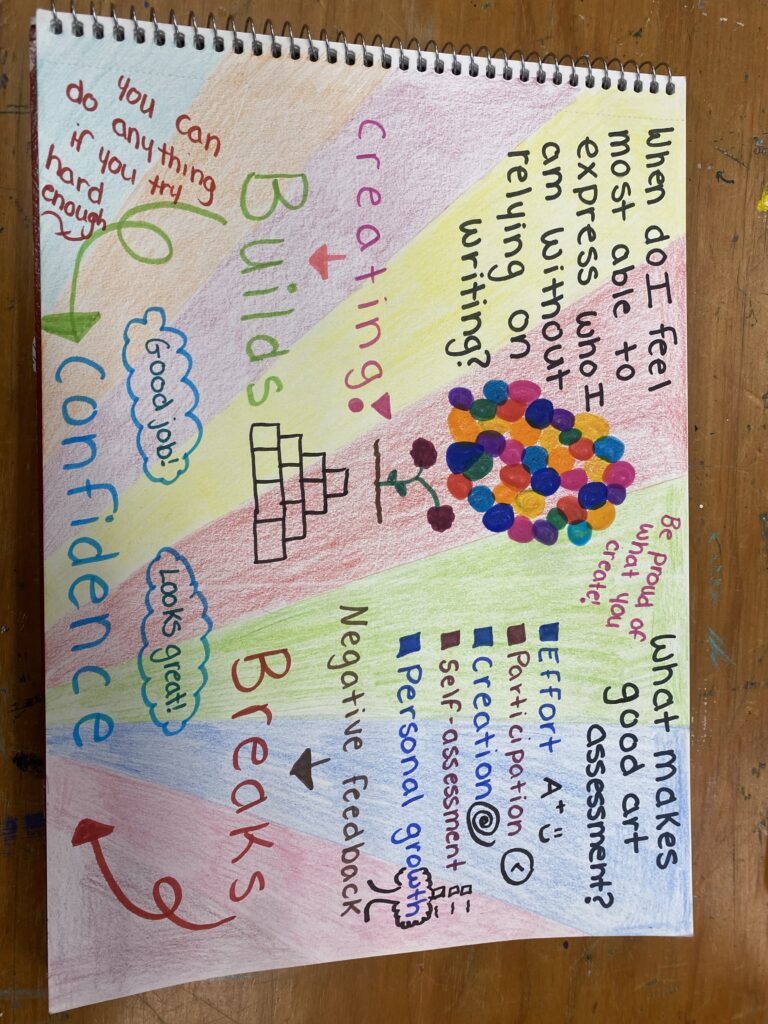 When do I feel
most able to
express who I
am without
relying on
writing?
Be proud of
what you
create!
What makes
good art
assessment?
Effort A+
Participation
Creation
Self-assessment
Personal growth
Creating!
Negative feedback
Builds
Breaks
You can
do anything
if you try
hard
enough
Good job!
Looks great!
Confidence